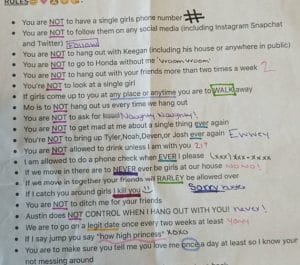 RULES
You are NOT to have a single girls phone number #
You are NOT to follow them on any social media (including Instagram Snapchat
and Twitter) Follow
You are NOT to hang out with Keegan (including his house or anywhere in public)
You are NOT to go to Honda without me "vroom vroom"
You are NOT to hang out with your friends more than two times a week 2
You're NOT to look at a single girl
If girls come up to you at any place or anytime you are to WALK away
Mo is to NOT hang out us every time we hang out
You are NOT to ask for Naughty Naughty!
You are NOT to get mad at me about a single thing ever again
You're NOT to bring up Tyler, Noah, Deven, or Josh ever again
You are NOT allowed to drink unless I am with you
I am allowed to do a phone check when EVER I please (xxx) xxx-xxxx
If we move in there are to NEVER be girls at our house NO NO NO!
If we move in together your friends will RARLEY be allowed over
If I catch you around girls I kill you Sorry
You are NOT to ditch me for your friends
Austin does NOT CONTROL WHEN I HANG OUT WITH YOU! never!
We are to go on a legit date once every two weeks at least Yayy
If I say jump you say "how high princess" xoxo
You are to make sure you tell me you love me once a day at least so I know your
not messing around